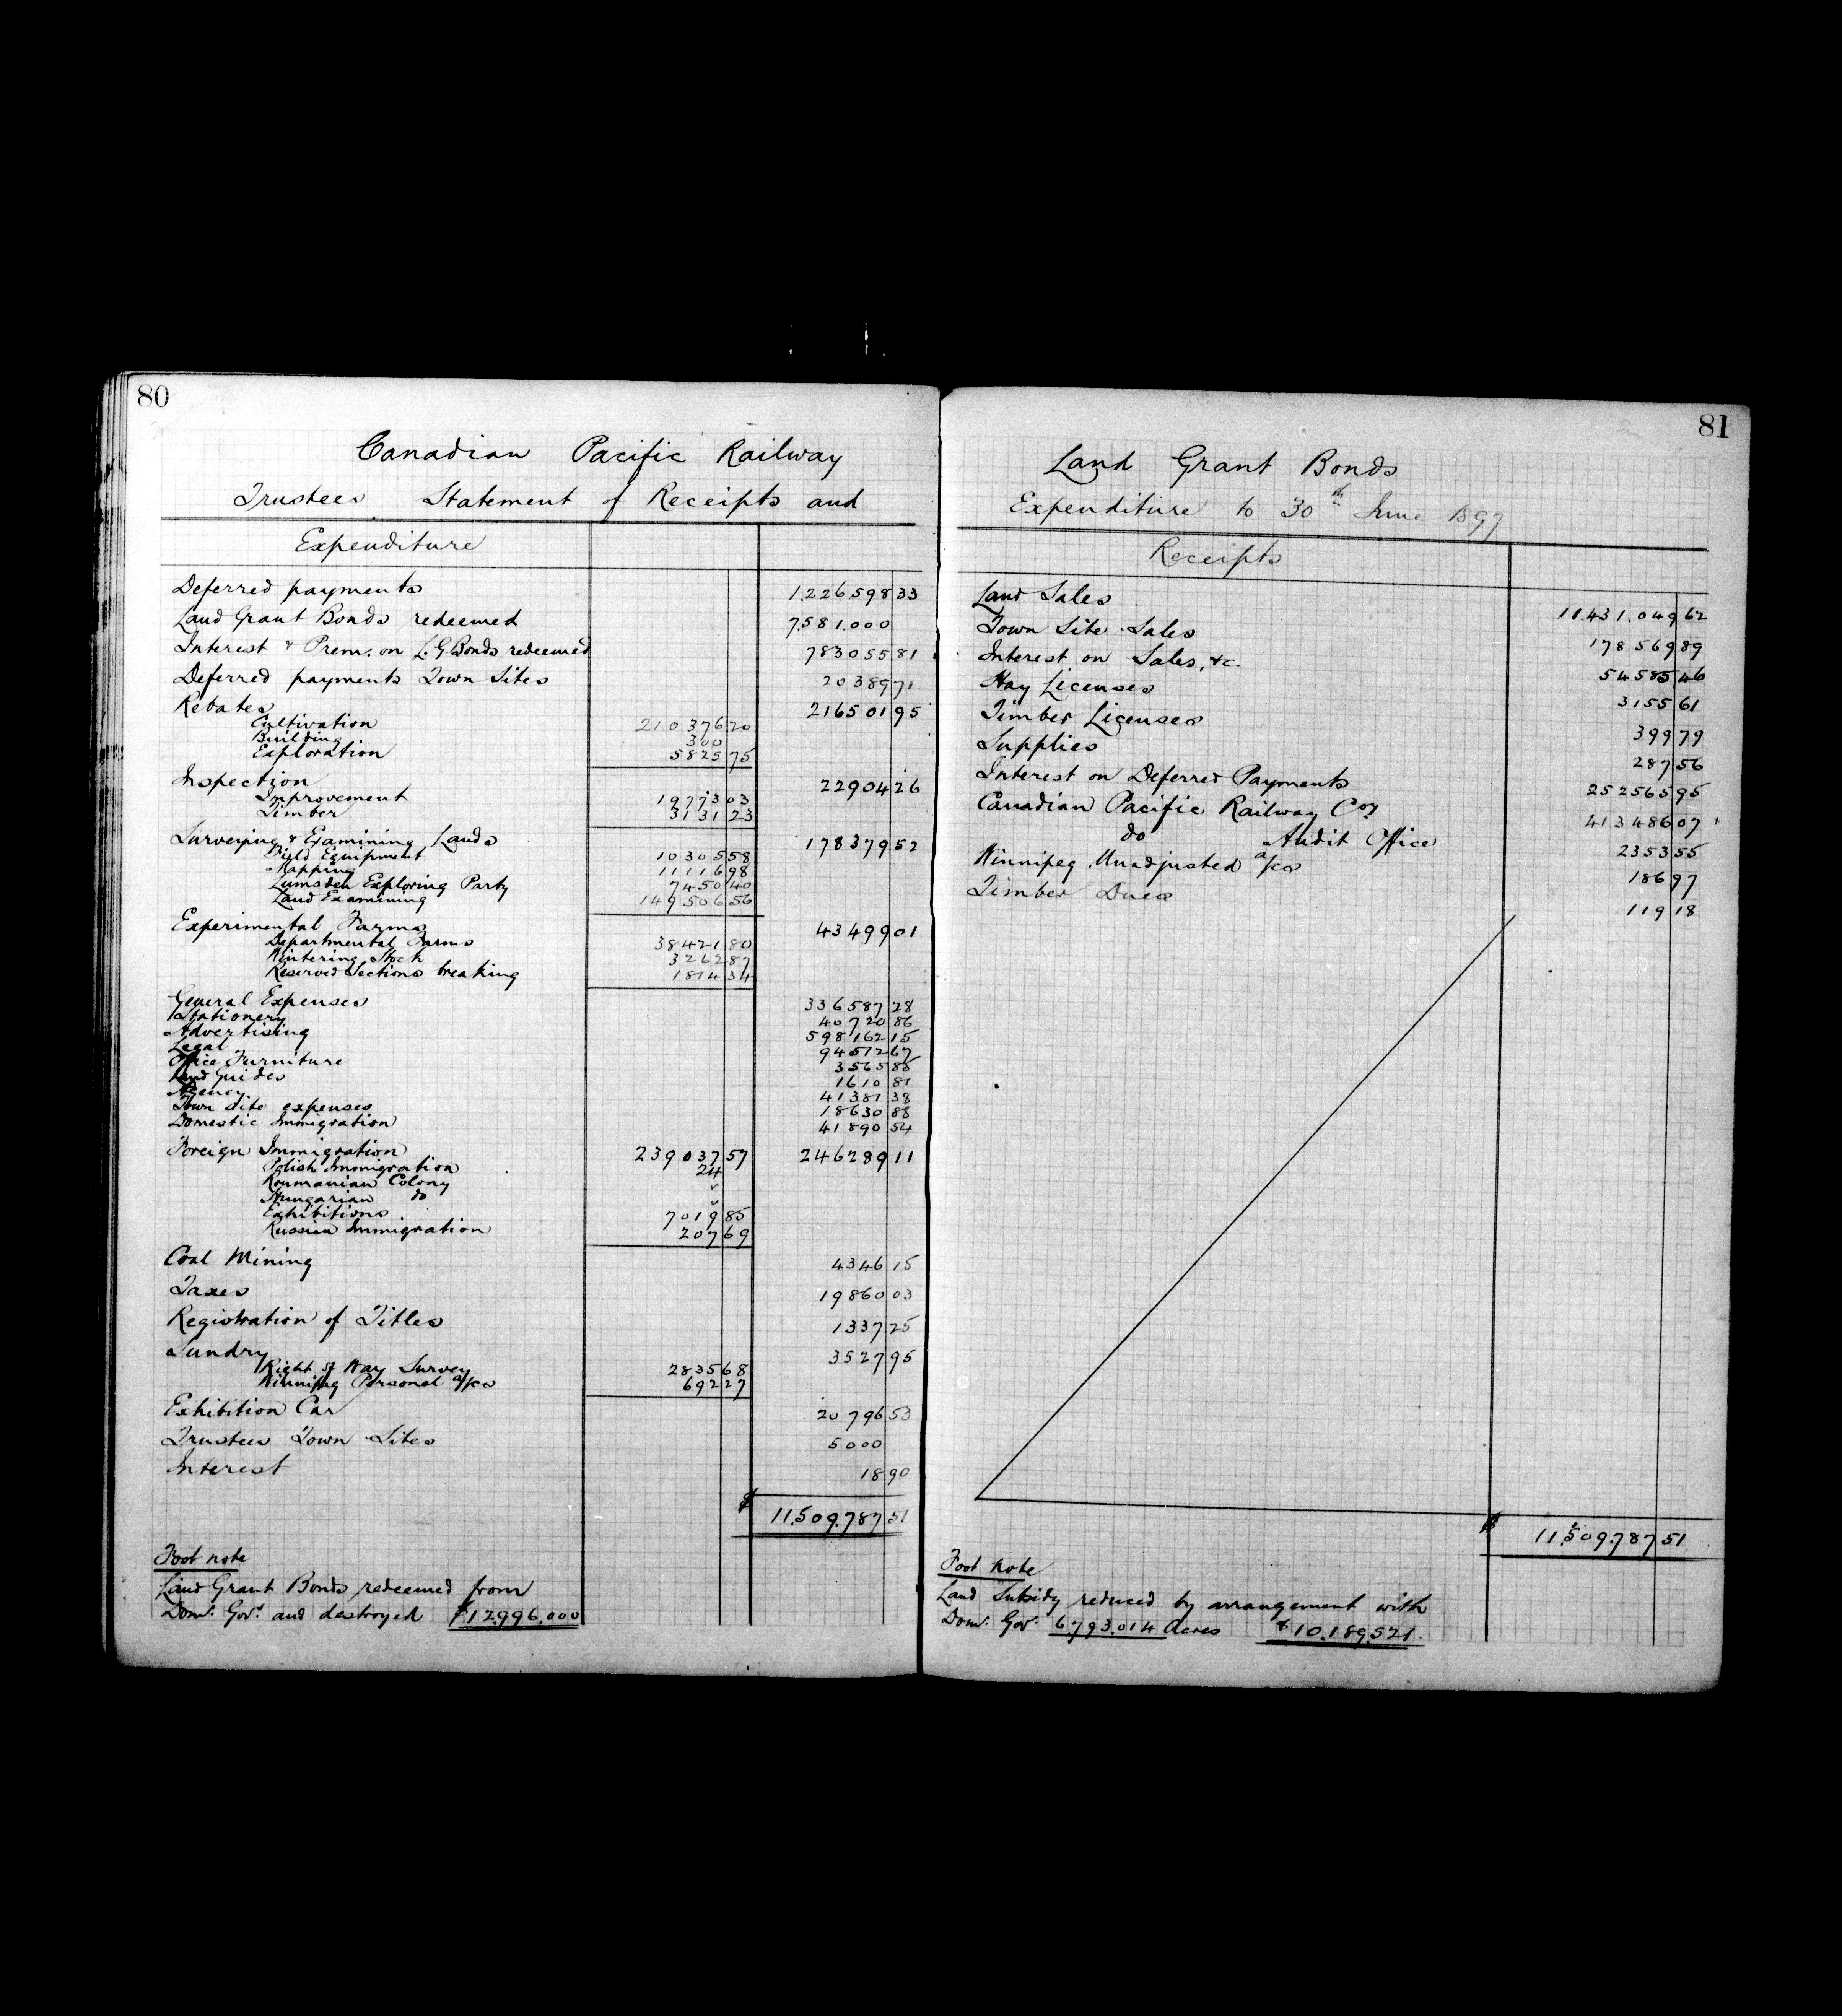 80
Canadian Pacific Railway
Trustees Statement of Receipts and
Expenditure
Deferred payments 1.226598 33
Land Grant Bonds redeemed 7.581.000
Interest & Prem. on L.G. Bonds redeemed 783055 81
Deferred payments Town Sites 20389 71
Rebates 216501 95
Cultivation 210376 20
Building 300
Exploration 5825 75
Inspection 22904 26
Improvement 19773 03
Timber 3131 23
Surveying & Examining Lands 178379 52
Field Equipment 10305 58
Mapping 11116 98
Lumsden Exploring Party 7450 40
Land Examining 149506 56
Experimental Farms 43499 01
Departmental Farms 38421 80
Wintering Stock 3262 87
Reserved Sections breaking 1814 34
General Expenses 336587 28
Stationery 40720 86
Advertising 598162 15
Legal 94512 67
Office Furniture 3565 86
Land Guides 1610 81
Agency 41381 38
Town site expenses 18630 88
Domestic Immigration 41890 54
Foreign Immigration 239037 57 246289 11
Polish Immigration 24
Roumanian Colony
Hungarian do
Exhibitions 7019 85
Russian Immigration 207 69
Coal Mining 4346 15
Taxes 19860 03
Registration of Titles 1337 25
Sundry 3527 95
Right of Way Survey 2835 68
Winnipeg Personal a/cs 692 27
Exhibition Car 20796 53
Trustees Town Sites 5000
Interest 18 90
$ 11.509.787 51
Foot note
Land Grant Bonds redeemed from
Domn. Govt. and destroyed $12.996.000
81
Land Grant Bonds
Expenditure to 30th June 1897
Receipts
Land Sales 11.431.049 62
Town Site Sales 178569 89
Interest on Sales, &c. 54585 46
Hay Licenses 3155 61
Timber Licenses 399 79
Supplies 287 56
Interest on Deferred Payments 252565 95
Canadian Pacific Railway Coy 413486 07
do Audit Office 2353 55
Winnipeg Unadjusted a/cs 186 97
Timber Dues 119 18
$ 11.509.787 51
Foot note
Land Subsidy reduced by arrangement with
Domn. Govt. 6.793.014 Acres $10.189.521.